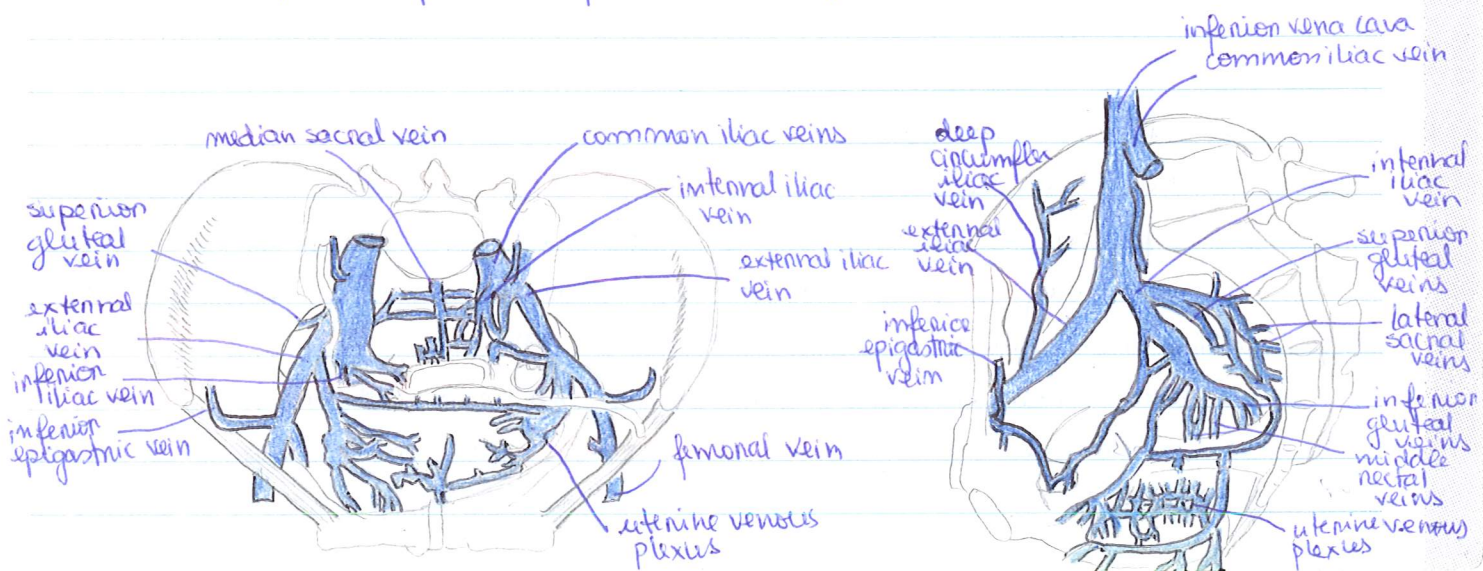 median sacral vein
common iliac veins
internal iliac
vein
external iliac
vein
superior
gluteal
vein
external
iliac
vein
inferior
iliac vein
inferior
epigastric vein
femoral vein
uterine venous
plexus
inferior vena cava
common iliac vein
deep
circumflex
iliac
vein
external
iliac
vein
inferior
epigastric
vein
internal
iliac
vein
superior
gluteal
veins
lateral
sacral
veins
inferior
gluteal
veins
middle
rectal
veins
uterine venous
plexus